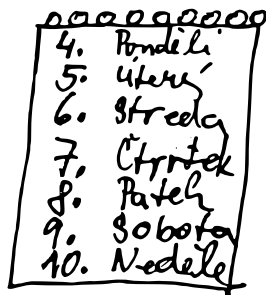 4. Pondělí
5. Úterý
6. Středa
7. Čtvrtek
8. Pátek
9. Sobota
10. Neděle